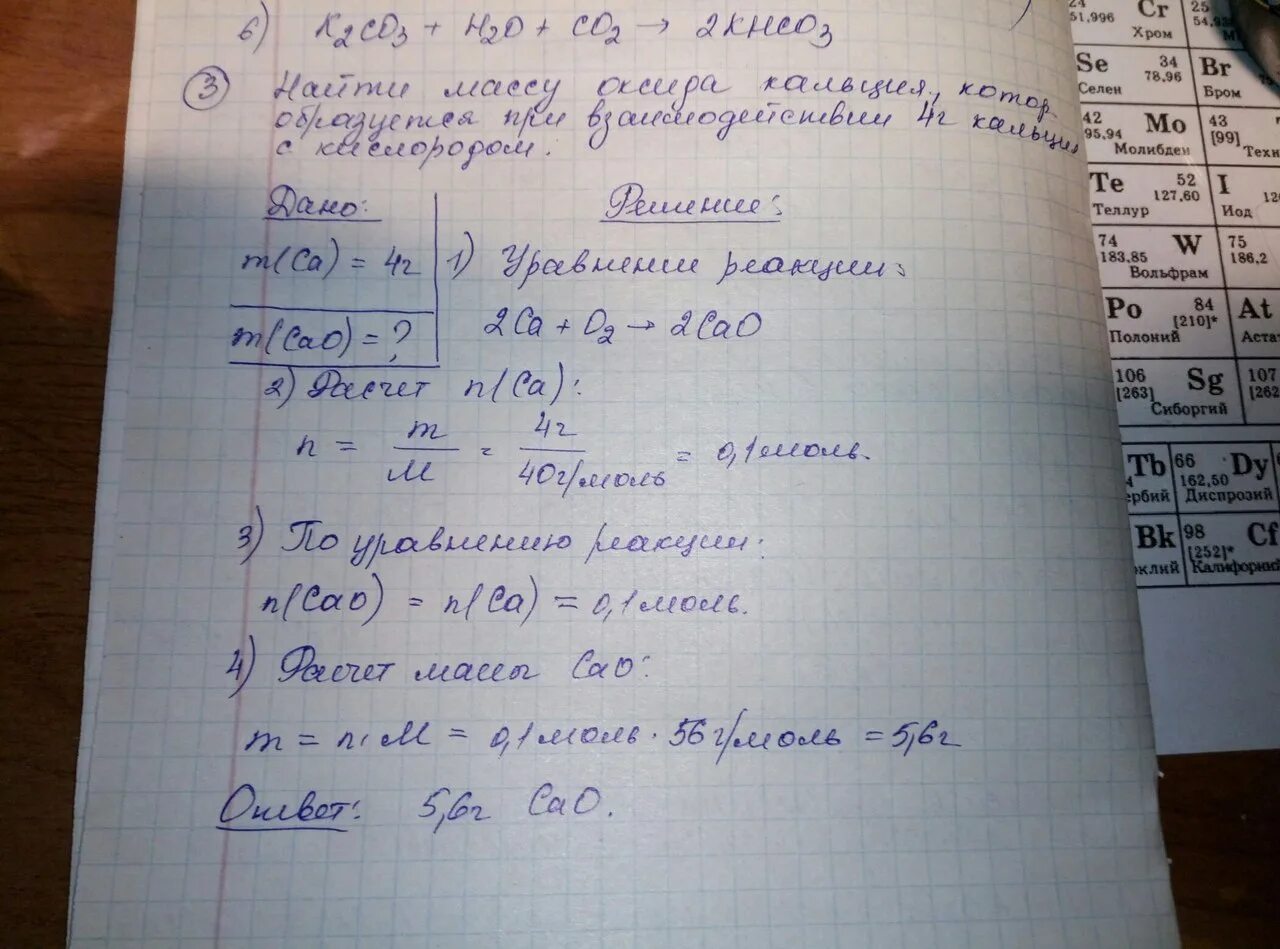 6) K2CO3 + H2O + CO2 → 2KHCO3
3 Найти массу оксида кальция, котор.
образуется при взаимодействии 4г кальция
с кислородом.
Дано:
Решение:
m(Ca) = 4г
1) Уравнении реакции:
m(CaO) = ?
2Ca + O2 → 2CaO
2) Расчет n(Ca):
n = m/M = 4г/40г/моль = 0,1 моль.
3) По уравнению реакции:
n(CaO) = n(Ca) = 0,1 моль.
4) Расчет массы CaO:
m = n · M = 0,1 моль · 56 г/моль = 5,6г
Ответ: 5,6г CaO.
24 Cr 25
51,996 54,938
Хром
Se 34 Br
78,96
Селен Бром
42 Mo 43
95,94 [99]
Молибден Техн
Te 52 I
127,60 12
Теллур Иод
74 W 75
183,85 186,2
Вольфрам
Po 84 At
[210]*
Полоний Аста
106 Sg 107
[263] [262
Сиборгий
Tb 66 Dy
162,50
ербий Диспрозий
Bk 98 Cf
[252]*
клий Калифорний